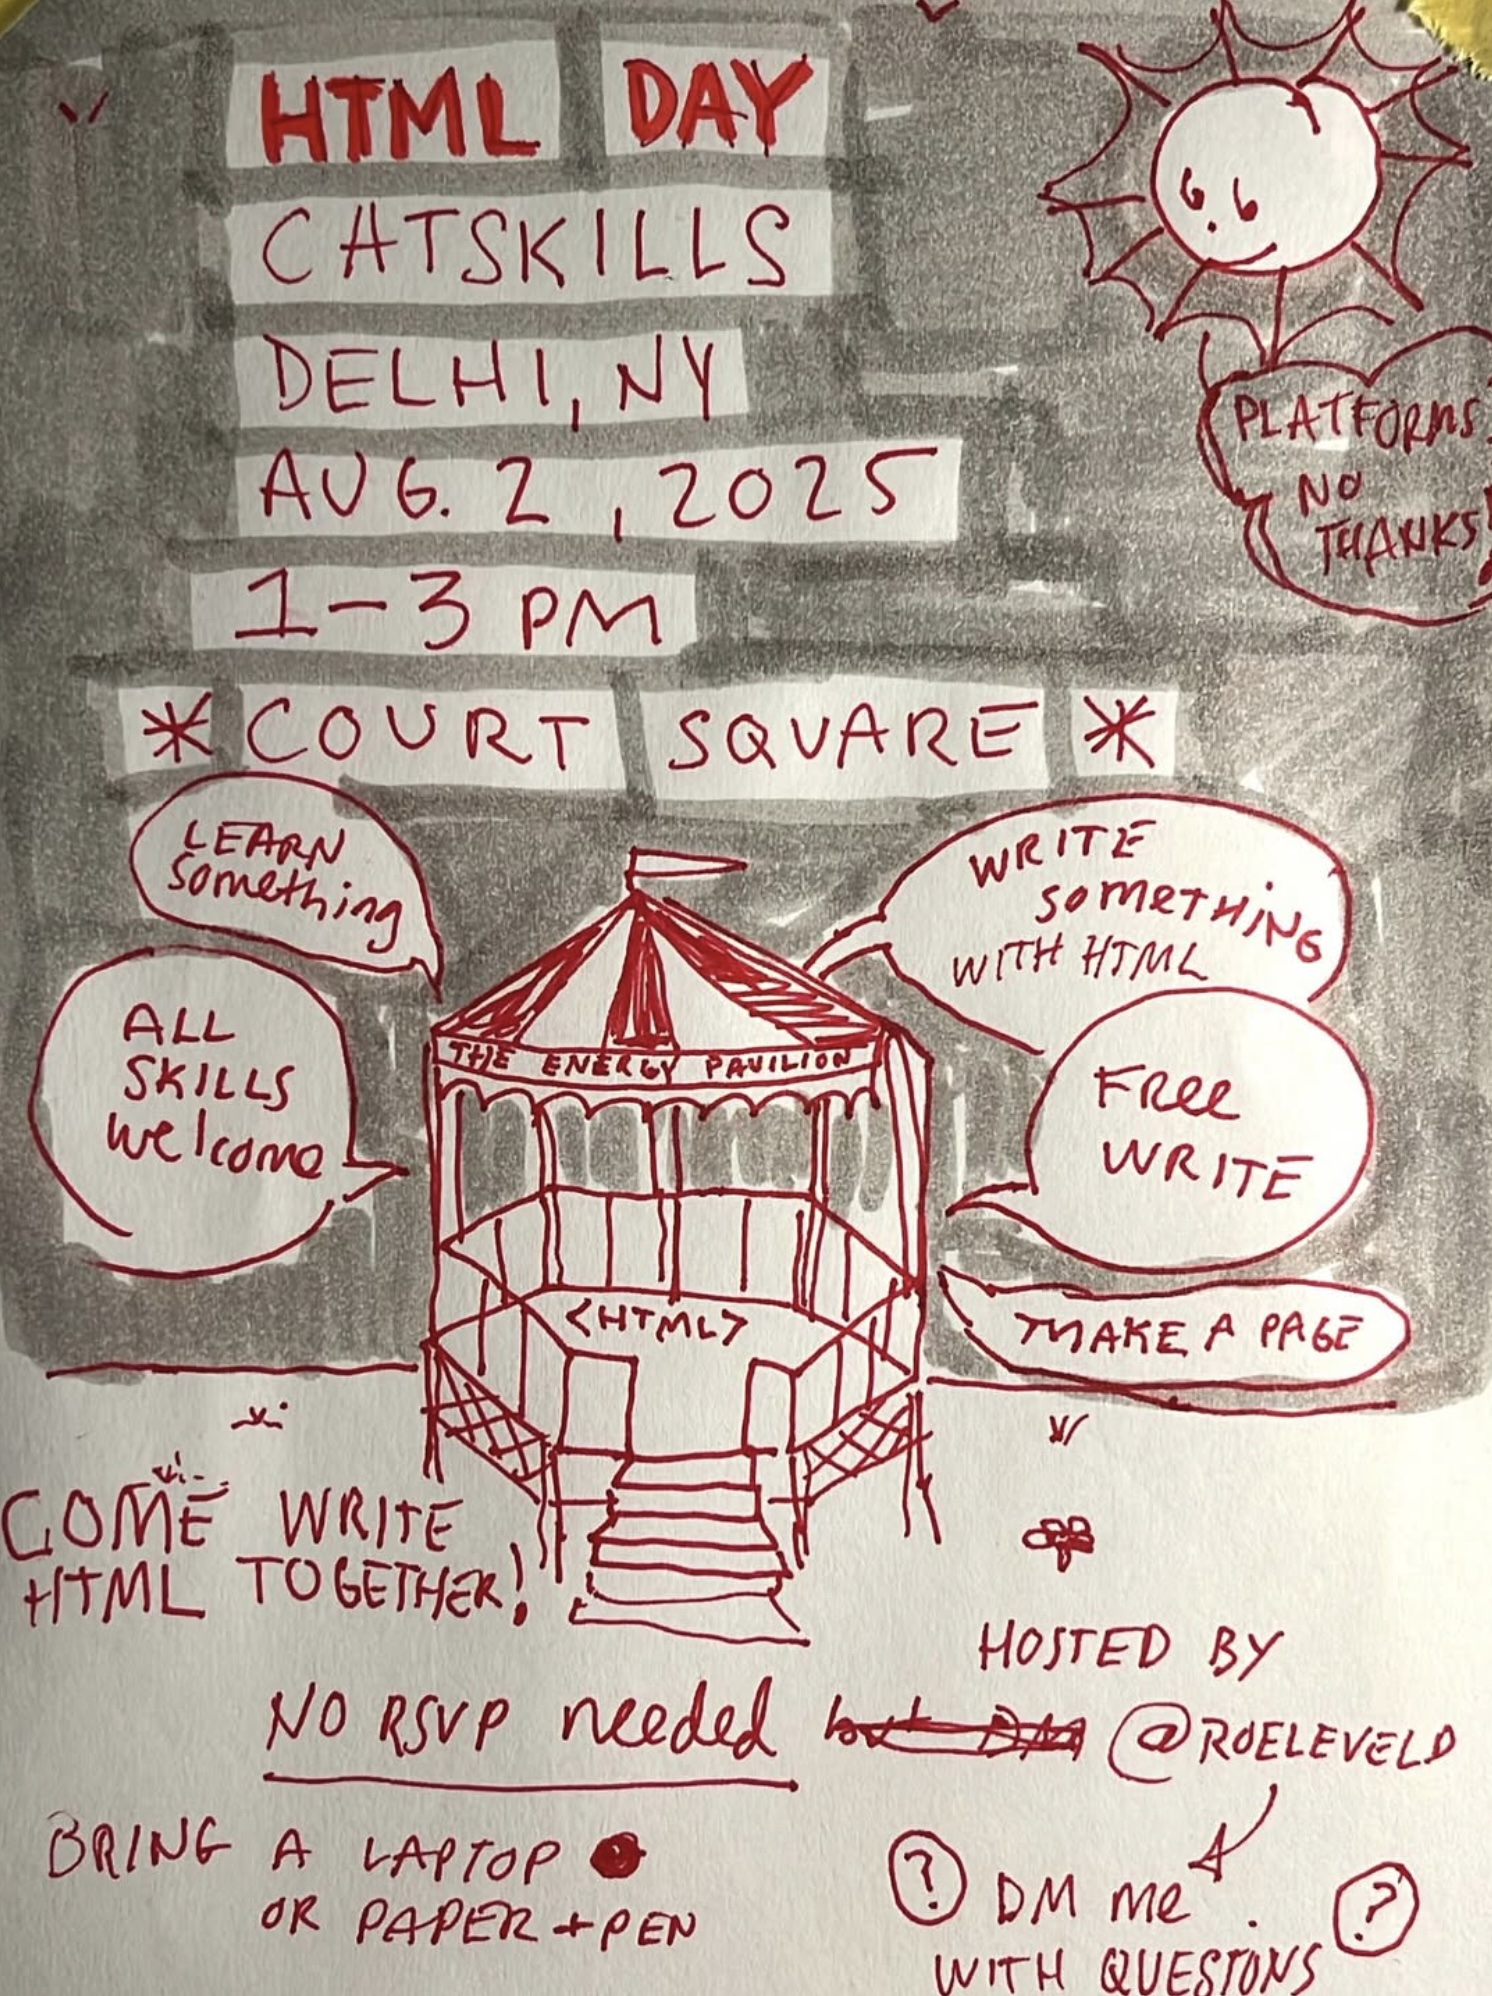 HTML DAY
CATSKILLS
DELHI, NY
AUG. 2, 2025
1-3 PM
* COURT SQUARE *
PLATFORMS
NO
THANKS!
LEARN
something
ALL
SKILLS
welcome
WRITE
something
WITH HTML
FRee
WRITE
MAKE A PAGE
THE ENERGY PAVILION
<HTML>
COME WRITE
HTML TOGETHER!
NO RSVP needed but DM
HOSTED BY
@ROELEVELD
BRING A LAPTOP
OR PAPER + PEN
? DM me. ?
WITH QUESTONS